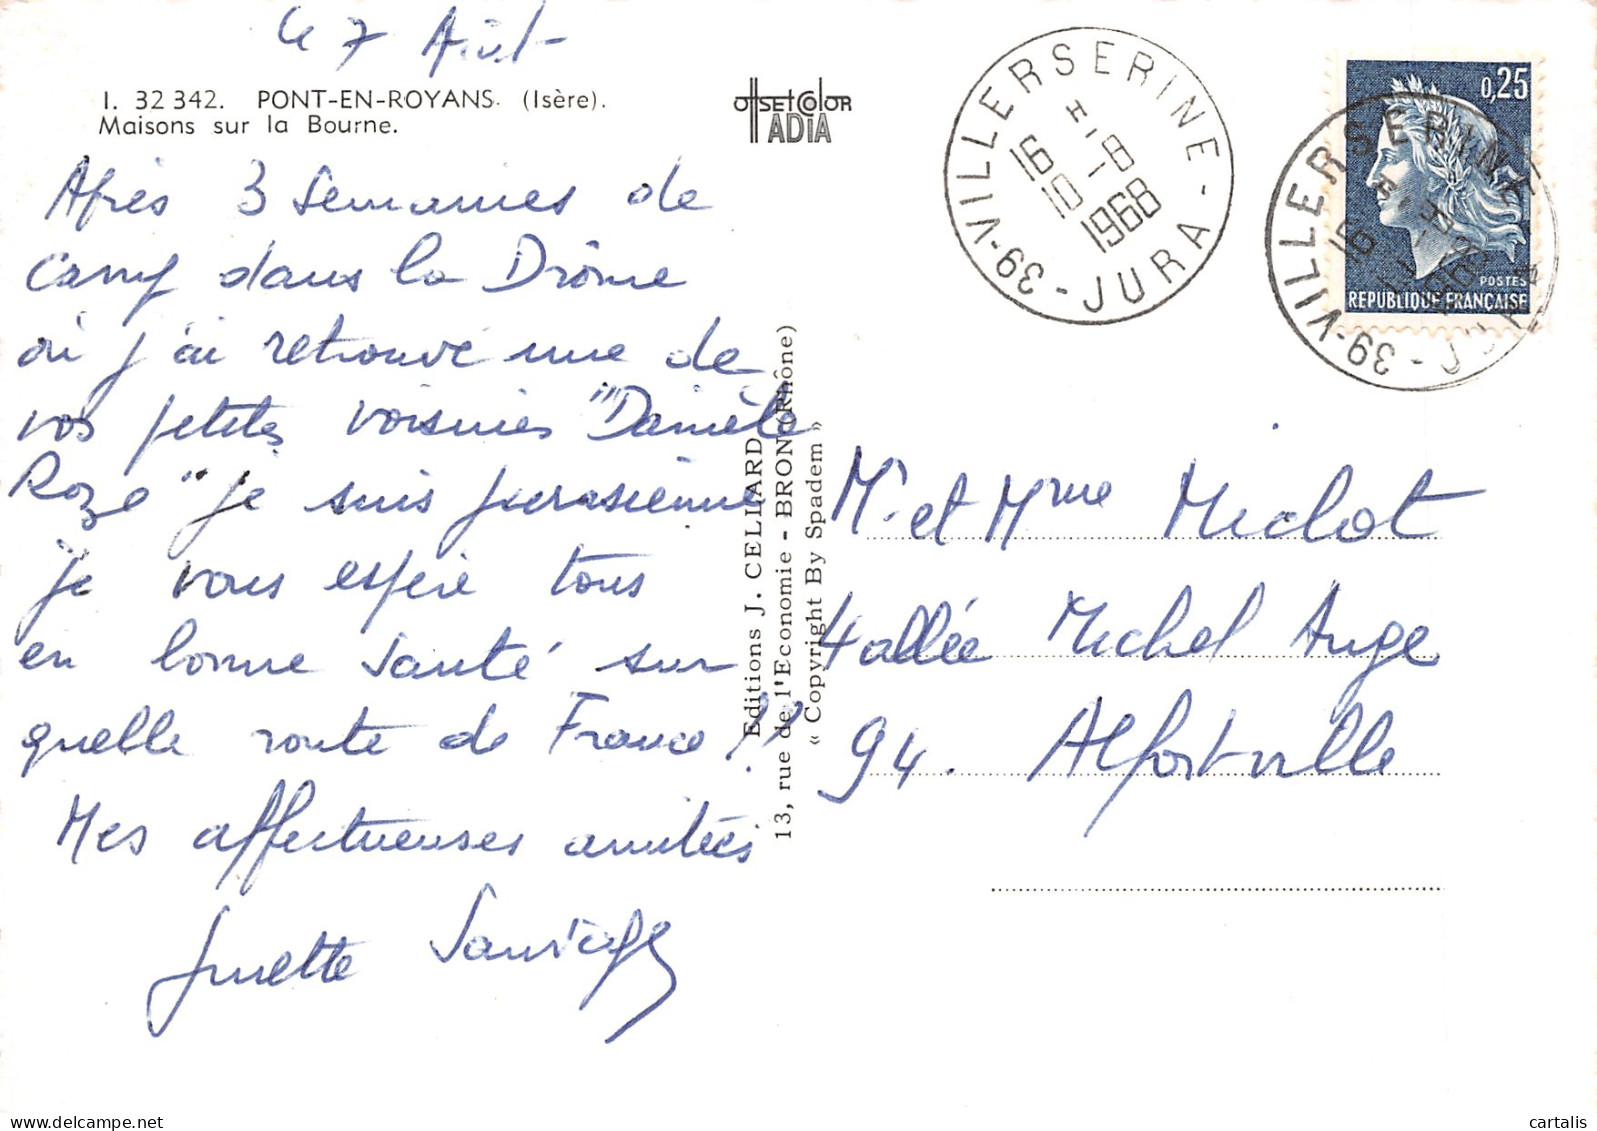 Le 7 Août
I. 32 342. PONT-EN-ROYANS. (Isère).
Maisons sur la Bourne.
OffSET COlOR
ADIA
Après 3 semaines de
camp dans la Drôme
où j'ai retrouvé une de
vos petites voisines "Danièle
Roze" je suis jurasienne
je vous espère tous
en bonne santé sur
quelle route de France!!
Mes affectueuses amitiés
Ginette Sauvage
Editions J. CELLARD
13, rue de l'Economie - BRON (Rhône)
« Copyright By Spadem »
39-VILLERSERINE-JURA-
16 H.
10 -8
1968
0,25
POSTES
REPUBLIQUE FRANÇAISE
39-VILLERSERINE
Mr et Mme Michot
4 allée Michel Ange
94. Alfortville
cartalis.com